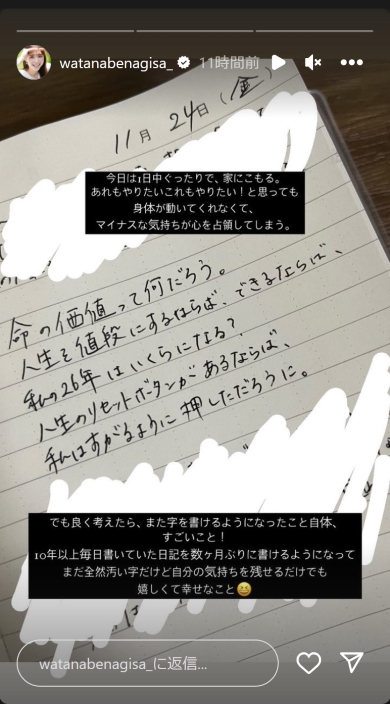 watanabenagisa_ 11時間前
11月 24日 (金)
今日は1日中ぐったりで、家にこもる。
あれもやりたいこれもやりたい！と思っても
身体が動いてくれなくて、
マイナスな気持ちが心を占領してしまう。
命の価値って何だろう。
人生を値段にするならば、できるならば、
私の26年はいくらになる？
人生のリセットボタンがあるならば、
私はすがるように押しただろうに。
でも良く考えたら、また字を書けるようになったこと自体、
すごいこと！
10年以上毎日書いていた日記を数ヶ月ぶりに書けるようになって
まだ全然汚い字だけど自分の気持ちを残せるだけでも
嬉しくて幸せなこと😆
watanabenagisa_に返信...